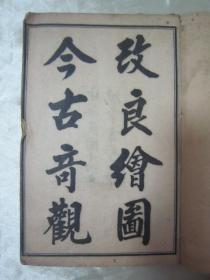 改良繪圖
今古奇觀